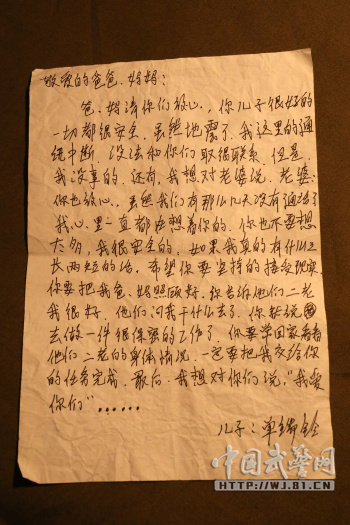 敬爱的爸爸、妈妈：
爸、妈请你们放心，你儿子很好的
一切都很安全，虽然地震了，我这里的通
线中断，没法和你们取得联系，但是
我没事的，还有，我想对老婆说，老婆：
你也放心，虽然我们有那么几天没有通话了
我心里一直都在想着你的，你也不要想
太多，我很安全的，如果我真的有什么
长两短的话，希望你要坚持的接受现实
你要把我爸、妈照顾好，你告诉他们二老
我很好，他们问我干什么去了，你就说
去做一件很保密的工作了，你要常回家看看
他们二老的身体情况，一定要把我交给你
的任务完成，最后，我想对你们说，"我爱
你们"……
儿子：单
中国武警网
HTTP://WJ.81.CN